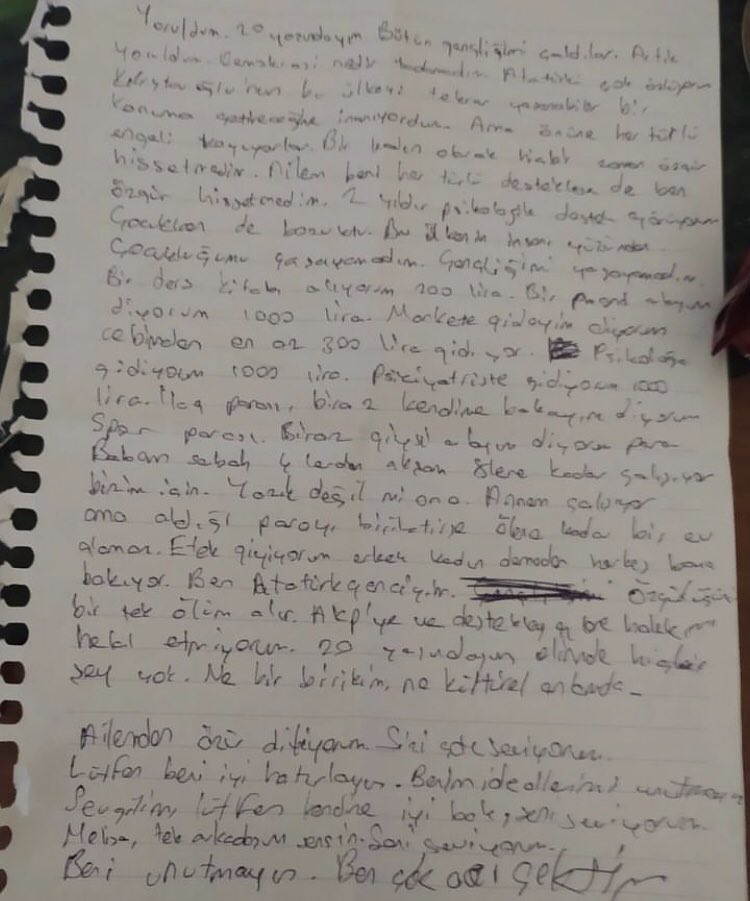 Yoruldum. 20 yaşındayım Bütün gençliğimi çaldılar. Artık
yoruldum. Demokrasi nedir tadamadım. Atatürkü çok özlüyorum
Kılıçdaroğlu'nun bu ülkeyi tekrar yaşanabilir bir
konuma getireceğine inanıyordum. Ama önüne her türlü
engeli koyuyorlar. Bir kadın olarak hiçbir zaman özgür
hissetmedim. Ailem beni her türlü desteklese de ben
özgür hissetmedim. 2 yıldır psikolojik destek görüyorum
Çocukken de bozuktu. Bu ülkenin insanı yüzünden
Çocukluğumu yaşayamadım. Gençliğimi yaşayamadım.
Bir ders kitabı alıyorum 200 lira. Bir alayım
diyorum 1000 lira. Markete gideyim diyorum
cebimden en az 300 lira gidiyor. Psikoloğa
gidiyorum 1000 lira. Psikiyatriste gidiyorum 1000
lira. İlaç parası, biraz kendime bakayım diyorum
Spor parası. Biraz giysi alayım diyorum para
Babam sabah lardan akşam kadar çalışıyor
bizim için. Yazık değil mi ona. Annem çalışıyor
ama aldığı parayı biriktirse ölene kadar bir ev
alamaz. Etek giyiyorum erkek kadın demeden herkes bana
bakıyor. Ben Atatürk genciyim. Özgürlüğümü
bir tek ölüm alır. Akp'ye ve destekleyen hakkımı
helal etmiyorum. 20 yaşındayım elimde hiçbir
şey yok. Ne bir birikim, ne kültürel
Ailemden özür diliyorum. Sizi çok seviyorum.
Lütfen beni iyi hatırlayın. Benim ideallerimi unutmayın
Sevgilim, lütfen kendine iyi bak, seni seviyorum.
Melisa, tek arkadaşım sensin. Seni seviyorum.
Beni unutmayın. Ben çok acı çektim